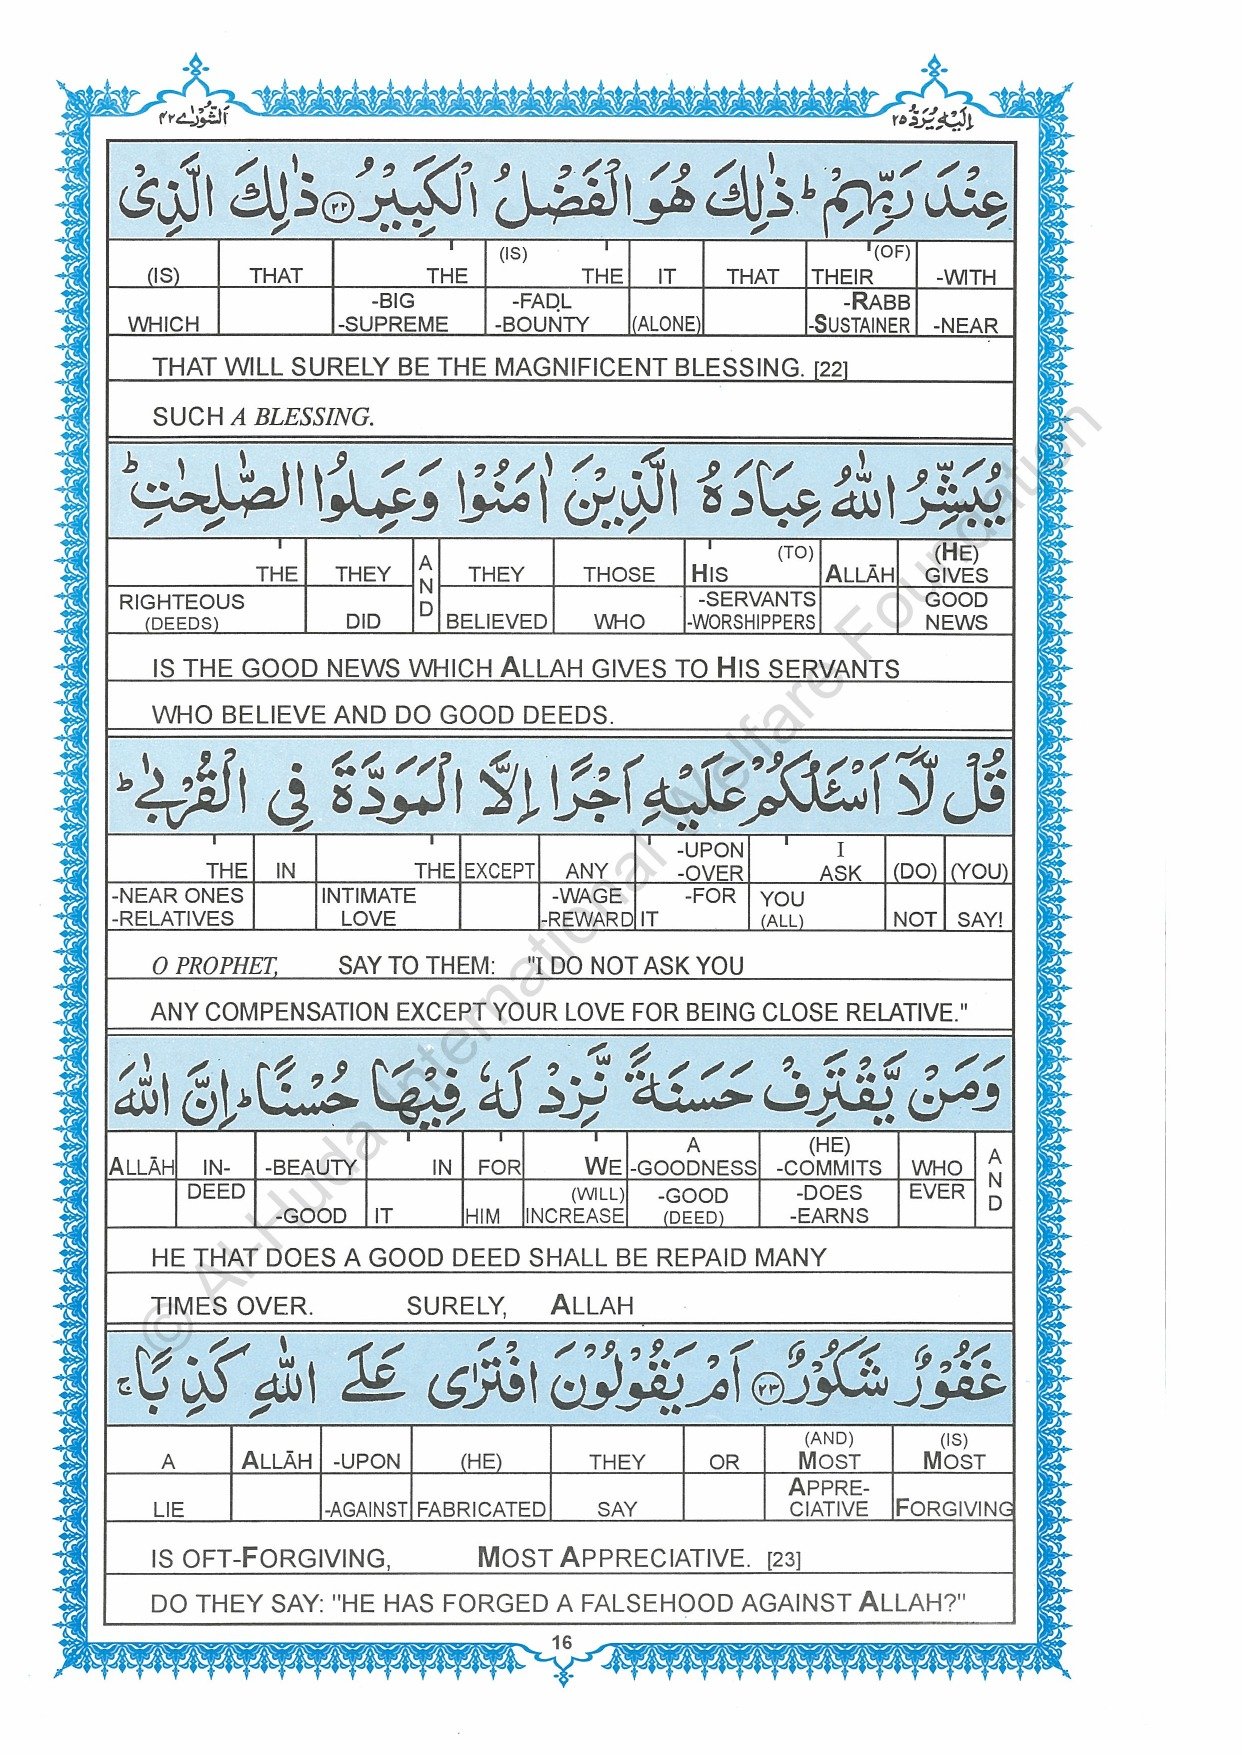 اَلشُّوْرٰى ٤٢
اِلَيْهِ يُرَدُّ ٢٥
عِنْدَ رَبِّهِمْ ؕ ذٰلِكَ هُوَ الْفَضْلُ الْكَبِيْرُ ۝٢٢ ذٰلِكَ الَّذِىْ
(IS) THAT THE (IS) THE IT THAT THEIR (OF) -WITH
WHICH -BIG -SUPREME -FAḌL -BOUNTY (ALONE) -RABB -SUSTAINER -NEAR
THAT WILL SURELY BE THE MAGNIFICENT BLESSING. [22]
SUCH A BLESSING.
يُبَشِّرُ اللّٰهُ عِبَادَهُ الَّذِيْنَ اٰمَنُوْا وَعَمِلُوا الصّٰلِحٰتِ ؕ
THE THEY AND THEY THOSE HIS (TO) ALLĀH (HE) GIVES
RIGHTEOUS (DEEDS) DID BELIEVED WHO -SERVANTS -WORSHIPPERS GOOD NEWS
IS THE GOOD NEWS WHICH ALLAH GIVES TO HIS SERVANTS
WHO BELIEVE AND DO GOOD DEEDS.
قُلْ لَّاۤ اَسْـَٔلُكُمْ عَلَيْهِ اَجْرًا اِلَّا الْمَوَدَّةَ فِى الْقُرْبٰى ؕ
THE IN THE EXCEPT ANY -UPON -OVER I ASK (DO) (YOU)
-NEAR ONES -RELATIVES INTIMATE LOVE -WAGE -REWARD IT -FOR YOU (ALL) NOT SAY!
O PROPHET, SAY TO THEM: "I DO NOT ASK YOU
ANY COMPENSATION EXCEPT YOUR LOVE FOR BEING CLOSE RELATIVE."
وَمَنْ يَّقْتَرِفْ حَسَنَةً نَّزِدْ لَهٗ فِيْهَا حُسْنًا ؕ اِنَّ اللّٰهَ
ALLĀH IN- -BEAUTY IN FOR WE A -GOODNESS (HE) -COMMITS WHO AND
DEED -GOOD IT HIM (WILL) INCREASE -GOOD (DEED) -DOES -EARNS EVER
HE THAT DOES A GOOD DEED SHALL BE REPAID MANY
TIMES OVER. SURELY, ALLAH
غَفُوْرٌ شَكُوْرٌ ۝٢٣ اَمْ يَقُوْلُوْنَ افْتَرٰى عَلَى اللّٰهِ كَذِبًا ۚ
A ALLĀH -UPON (HE) THEY OR (AND) MOST (IS) MOST
LIE -AGAINST FABRICATED SAY APPRE-CIATIVE FORGIVING
IS OFT-FORGIVING, MOST APPRECIATIVE. [23]
DO THEY SAY: "HE HAS FORGED A FALSEHOOD AGAINST ALLAH?"
16
© Al-Huda International Welfare Foundation